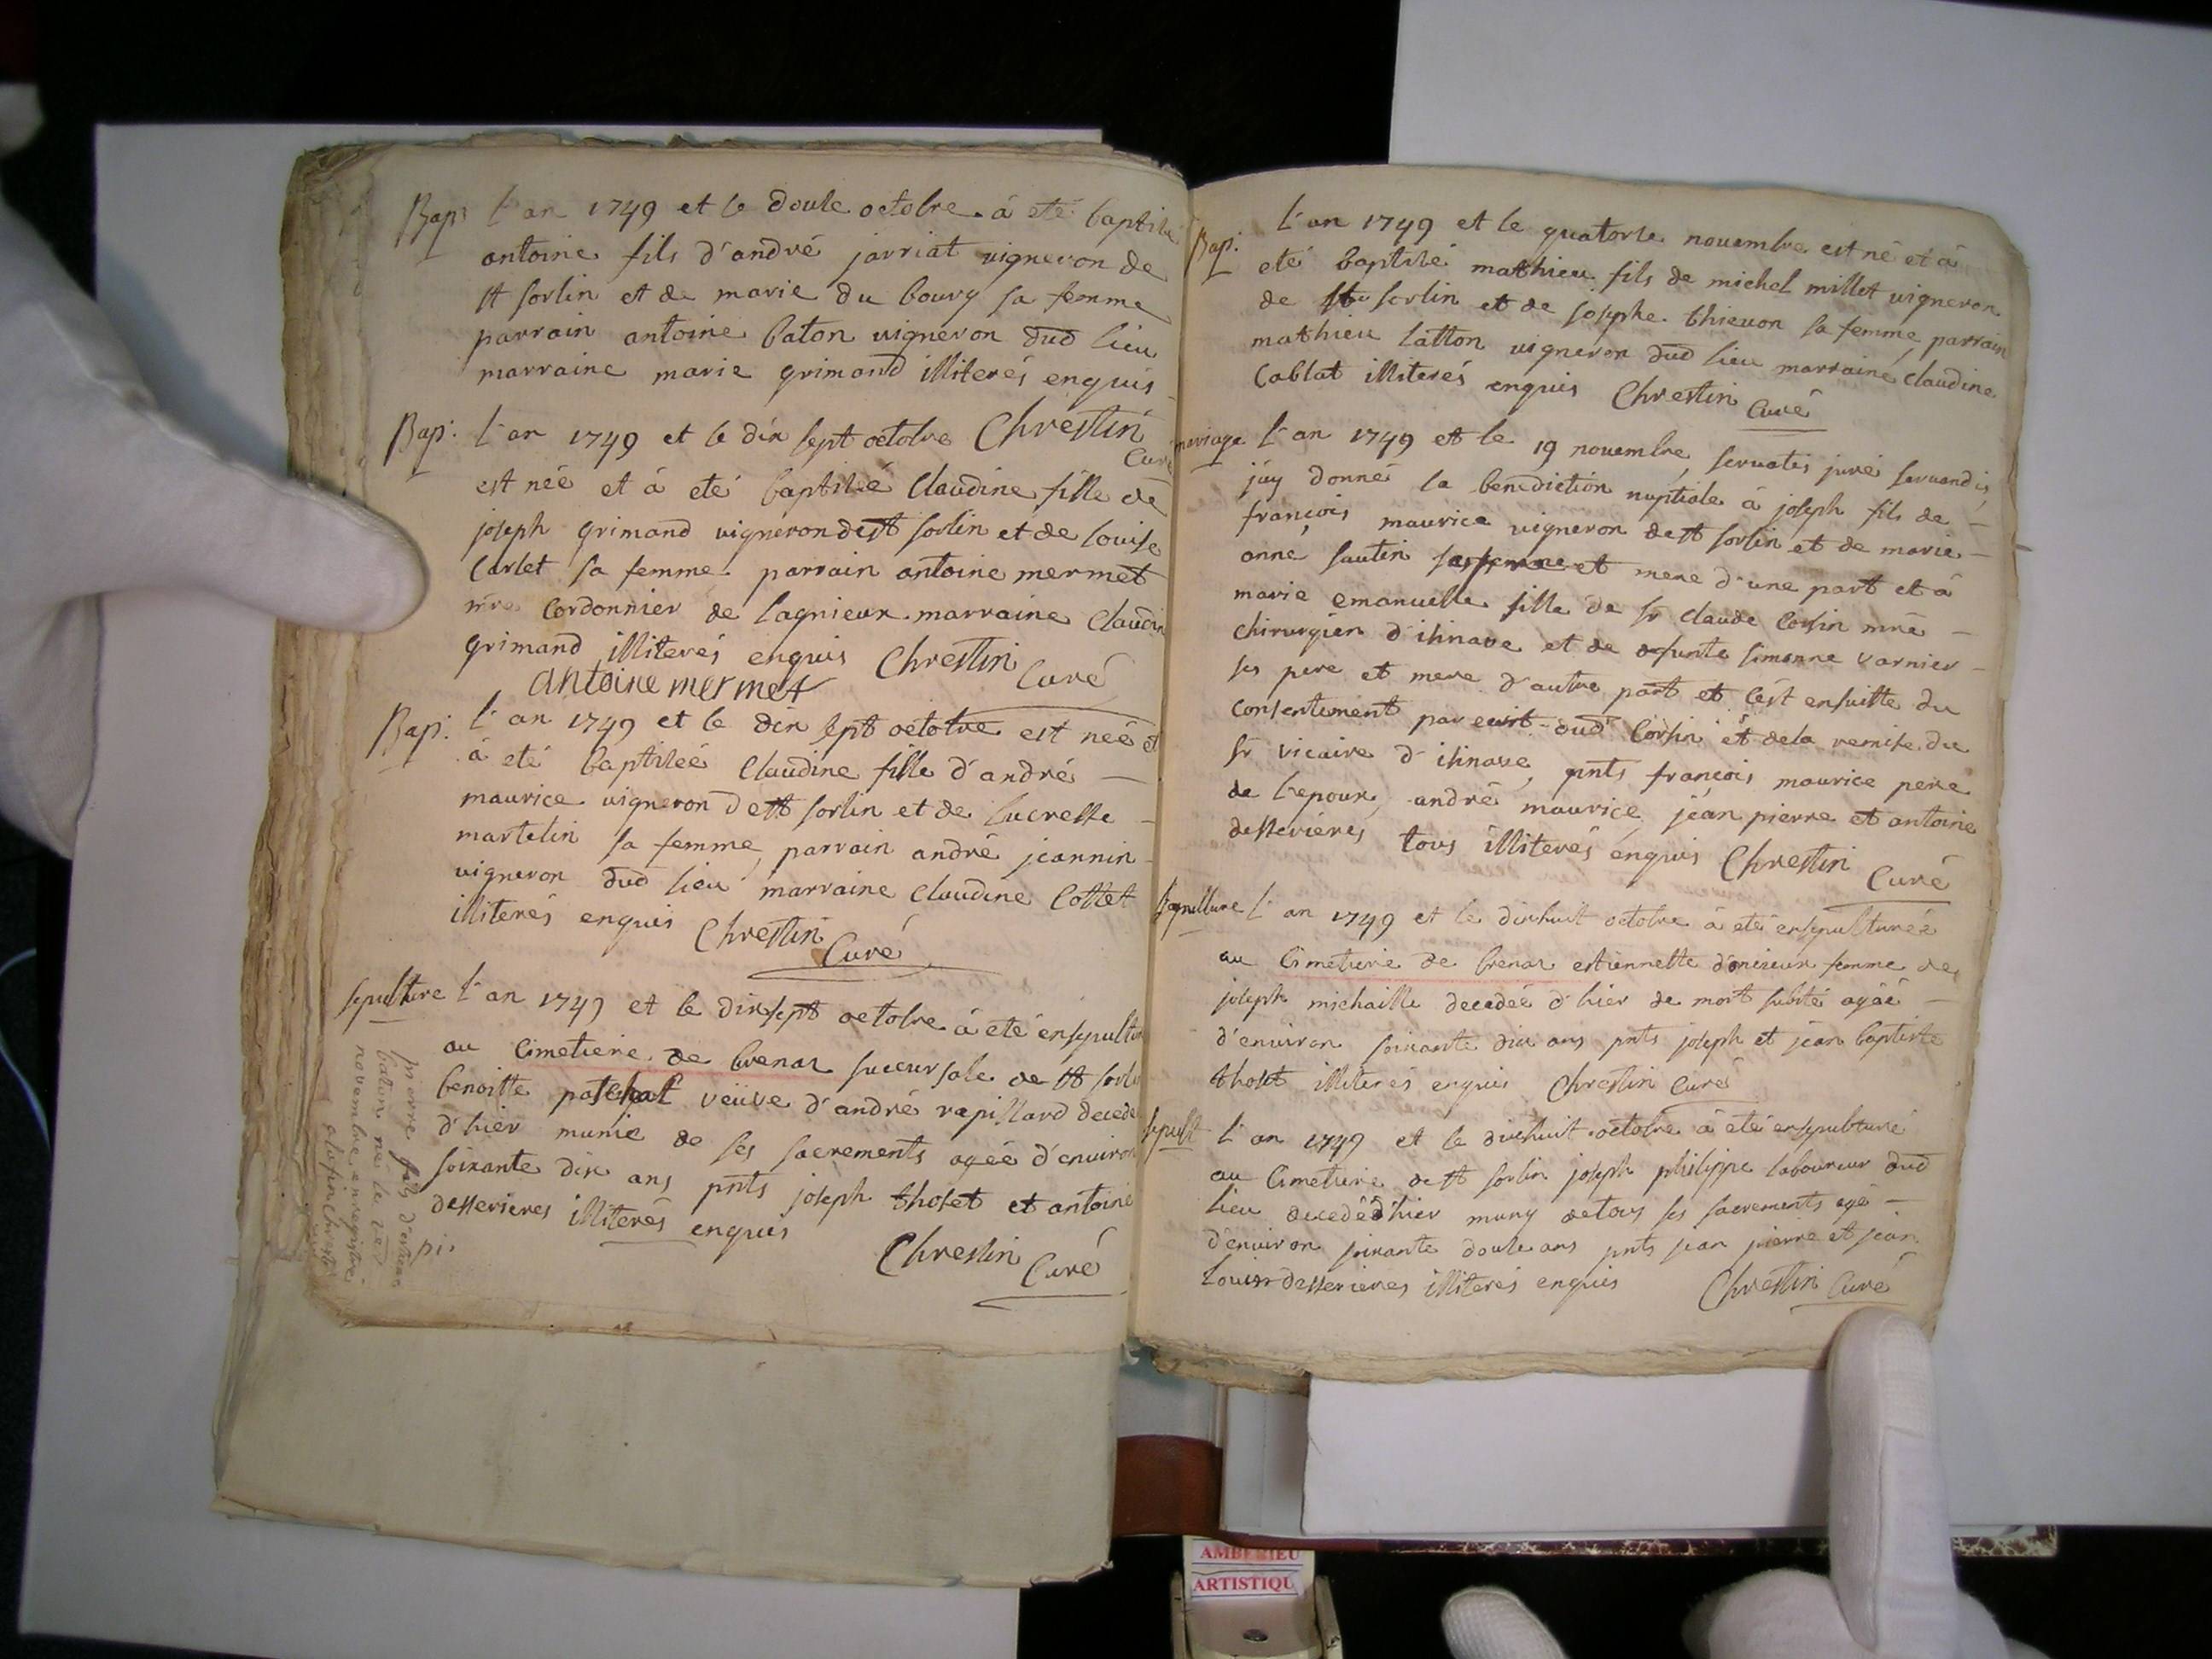 Bap: l'an 1749 et le douse octobre a eté baptisé
antoine fils d'andré jarriat vigneron de
st sorlin et de marie du bourg sa femme
parrain antoine baton vigneron dud lieu
marraine marie grimand illiterés enquis
Chrestin
Curé
Bap: l'an 1749 et le dix sept octobre
est née et à eté baptisée Claudine fille de
joseph grimand vigneron de st sorlin et de louise
Carlet sa femme parrain antoine mermet
mre Cordonnier de lagnieux marraine Claudine
grimand illiterés enquis Chrestin
Curé
antoine mermet
Bap: l'an 1749 et le dix sept octobre est née et
à eté baptisée Claudine fille d'andré
maurice vigneron de st sorlin et de lucresse
martelin sa femme, parrain andré jeannin
vigneron dud lieu marraine Claudine Cottet
illiterés enquis Chrestin
Curé
sepulture l'an 1749 et le dixsept octobre à eté ensepultur
au Cimetiere de brenas succursale de st sorlin
benoitte paschal veuve d'andré rapillard decedé
d'hier munie de ses sacrements agée d'environ
soixante dix ans pnts joseph thoset et antoine
desserieres illiterés enquis
Chrestin
Curé
pierre fils d'estiene
baton né le
novembre enregistré
a la fin chrestin
Bap: l'an 1749 et le quatorse novembre est né et à
eté baptisé mathieu fils de michel millet vigneron
de st sorlin et de josephe thievon sa femme, parrain
mathieu latton vigneron dud lieu marraine Claudine
Cablat illiterés enquis Chrestin Curé
mariage l'an 1749 et le 19 novembre, servatis jure servandis,
j'ay donné la benediction nuptiale à joseph fils de
françois maurice vigneron de st sorlin et de marie
anne sautin et mere d'une part et à
marie emanuelle fille de sr Claude Corsin mre
Chirurgien d'ihnave et de defunte simonne varnier
ses pere et mere d'autre part et c'est ensuitte du
Consentement par ecrit dud Corsin et de la remise du
sr vicaire d'ihnave, pnts françois maurice pere
de l'epoux, andré maurice, jean pierre et antoine
desserieres, tous illiterés enquis Chrestin
Curé
sepulture l'an 1749 et le dixhuit octobre à eté ensepulturée
au Cimetiere de brenas estiennette femme de
joseph michaille decedée d'hier de mort subite agée
d'environ soixante dix ans pnts joseph et jean baptiste
thoset illiterés enquis Chrestin Curé
sepult l'an 1749 et le dixhuit octobre à eté ensepulturé
au Cimetiere de st sorlin joseph philippe laboureur dud
lieu decedé d'hier muny de tous ses sacrements agé
d'environ soixante douse ans pnts jean pierre et jean
louis desserieres illiterés enquis Chrestin Curé
AMBERIEU
ARTISTIQU